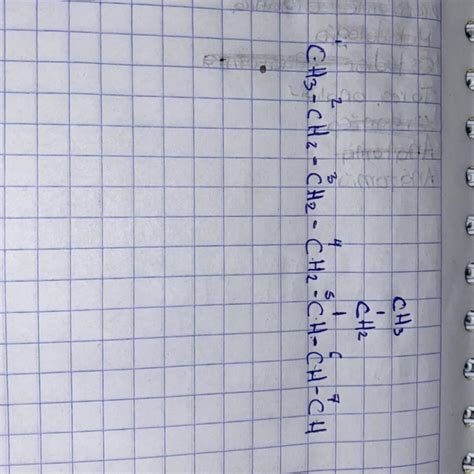 CH3
CH2
1 2 3 4 5 6 7
CH3-CH2-CH2-CH2-CH-CH-CH